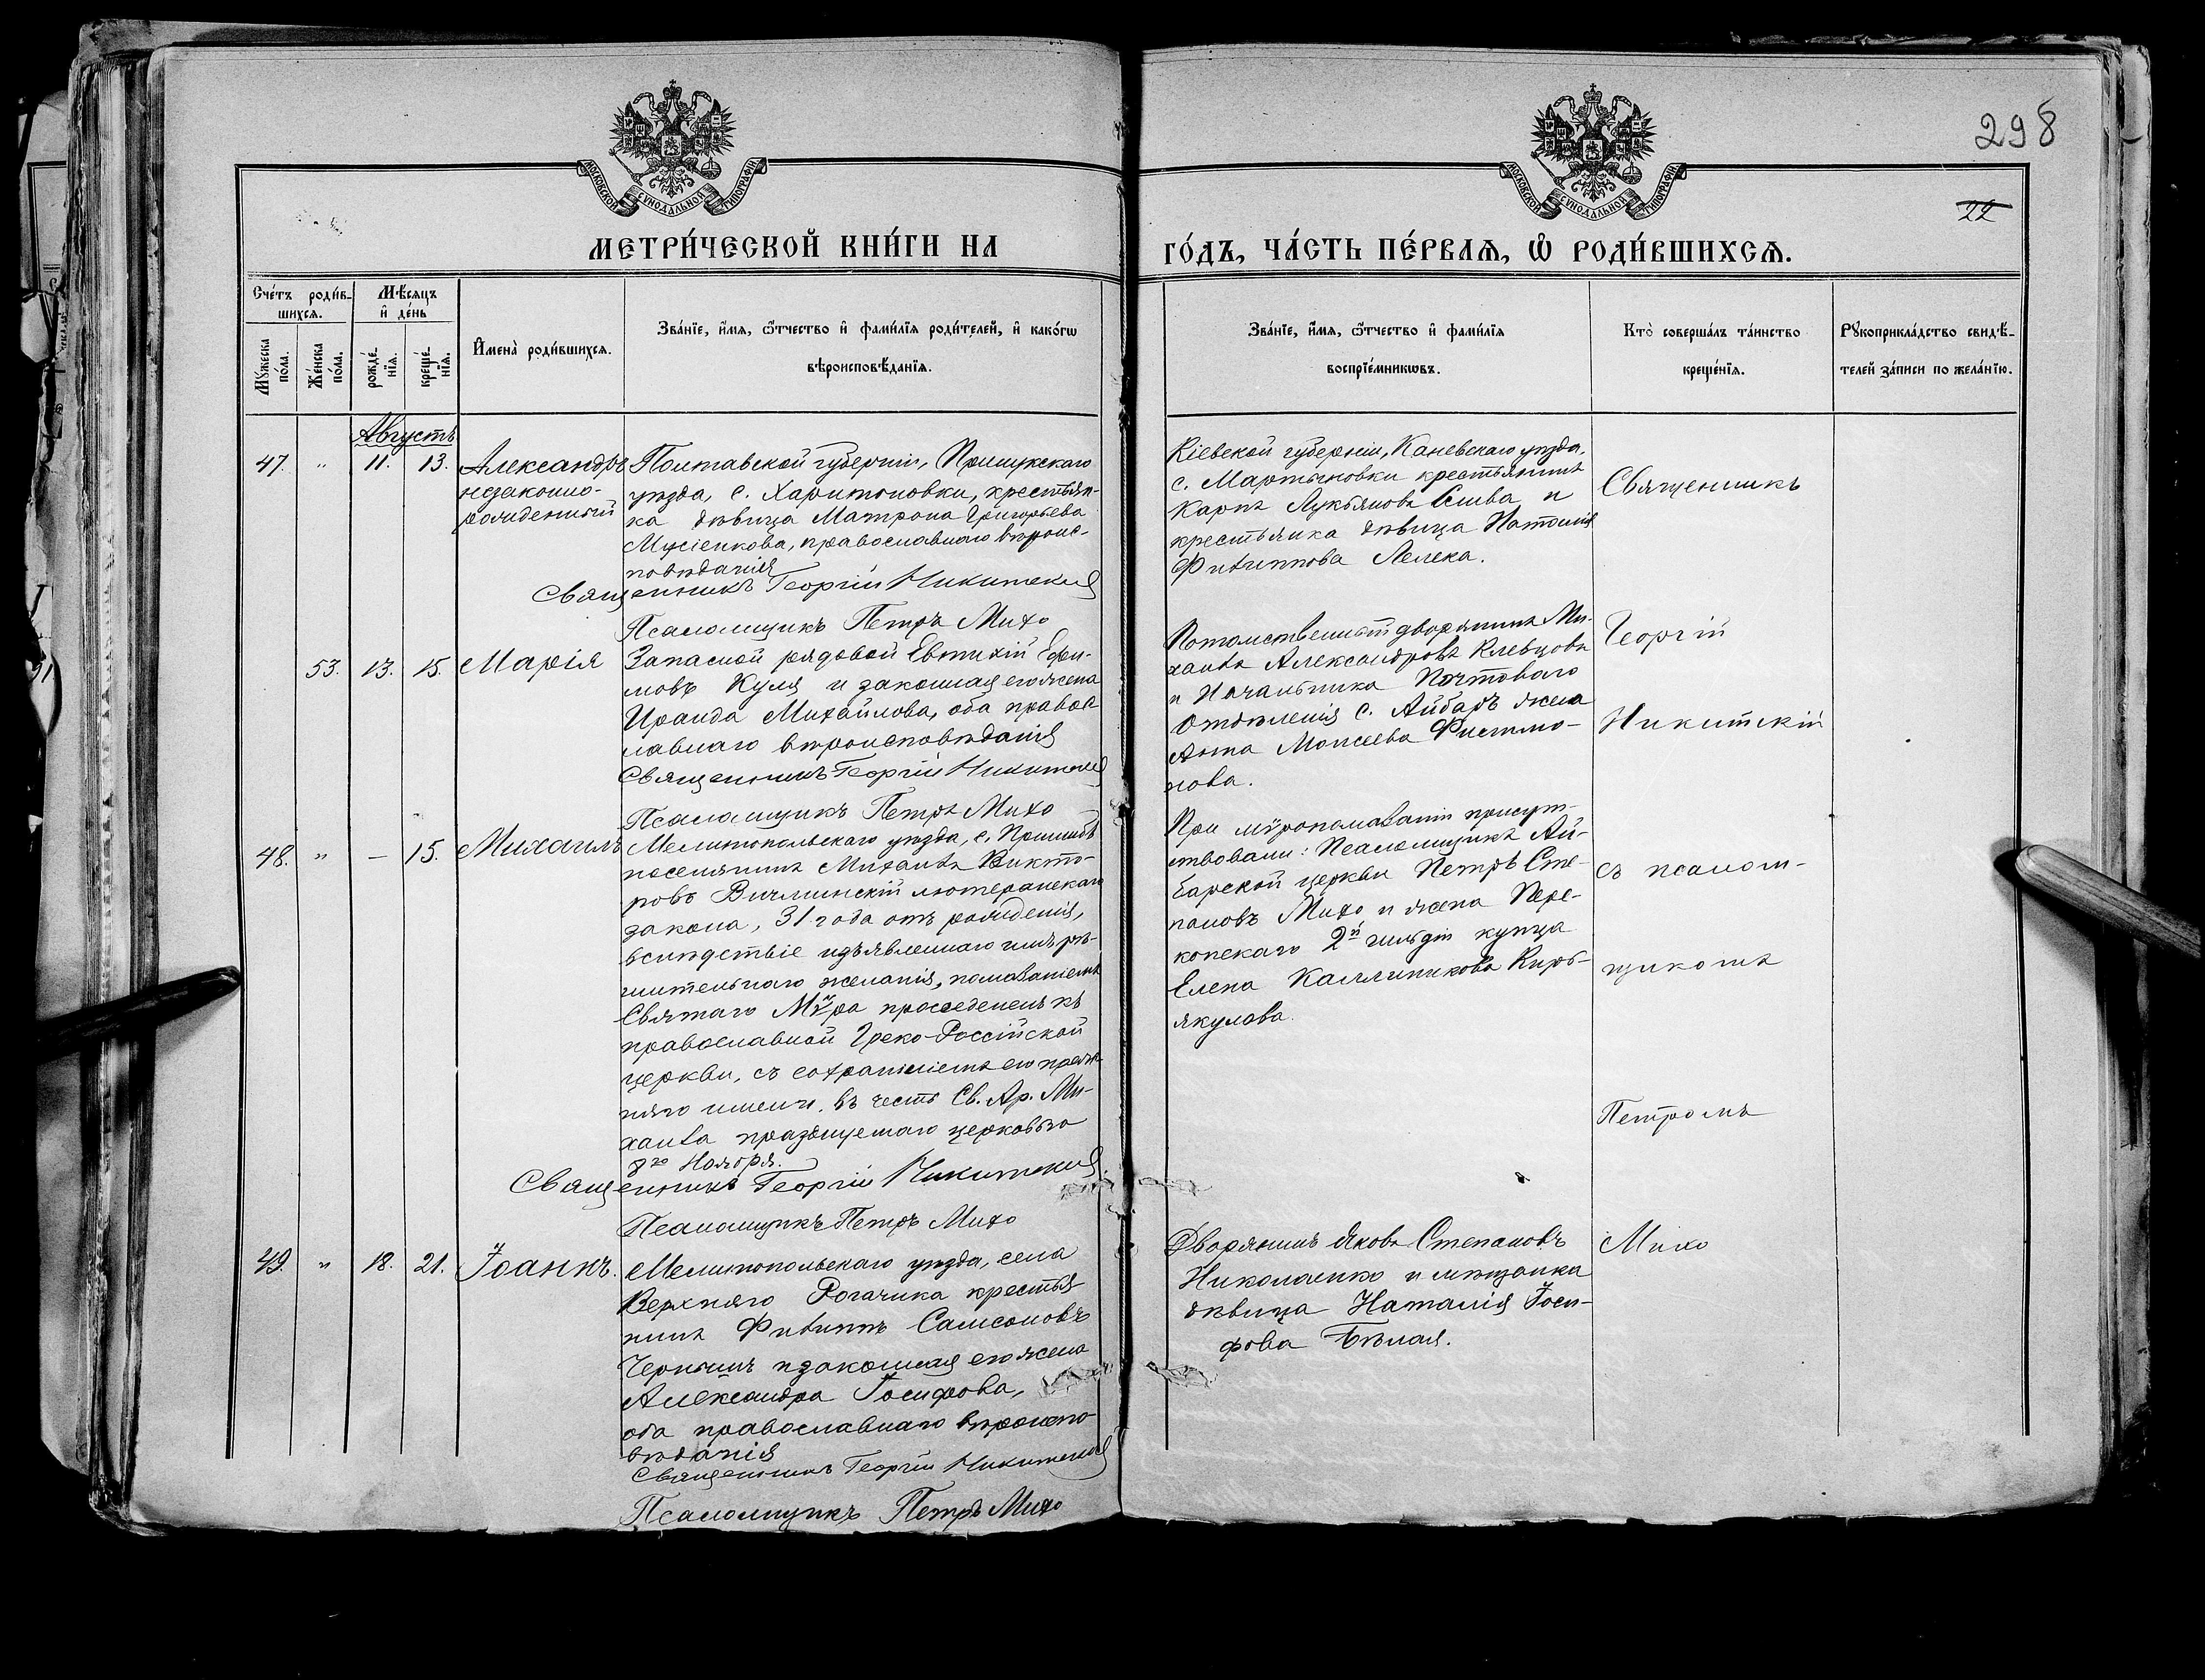 298
22
МОСКОВСКОЙ СѴНОДАЛЬНОЙ ТИПОГРАФІИ
МОСКОВСКОЙ СѴНОДАЛЬНОЙ ТИПОГРАФІИ
МЕТРИ́ЧЕСКОЙ КНИ́ГИ НА
ГО́ДЪ, ЧА́СТЬ ПЕ́РВАѦ, Ѡ҆ РОДИ́ВШИХСѦ.
Сче́тъ роди́в-
шихсѧ.
Мꙋ́жеска по́ла.
Же́нска по́ла.
Мѣ́сѧцъ
и҆ де́нь
рожде́-
нїѧ.
креще́-
нїѧ.
И҆мена̀ роди́вшихсѧ.
Зва́нїе, и҆́мѧ, ѻ҆́тчество и҆ фами́лїѧ роди́телей, и҆ како́гѡ
вѣроисповѣ́данїѧ.
Зва́нїе, и҆́мѧ, ѻ҆́тчество и҆ фами́лїѧ
воспрїе́мникѡвъ.
Кто̀ соверша́лъ та́инство
креще́нїѧ.
Рꙋкоприкла́дство свидѣ́-
телей за́писи по жела́нїю.
Августъ
47. " 11. 13. Александръ
незаконно-
рожденный
Полтавской губерніи, Прилукскаго
уѣзда, с. Харитоновки, крестьян-
ка дѣвица Матрона Григорьева
Мусіенкова, православнаго вѣроис-
повѣданія
Священникъ Георгій Никитскій
Псаломщикъ Петръ Михо
Кіевской губерніи, Каневскаго уѣзда,
с. Мартыновки крестьянинъ
Карпъ Лукьяновъ Слива и
крестьянка дѣвица Наталія
Филиппова Лелека.
Священникъ
53. 13. 15. Марія
Запасной рядовой Евтихій Ефи-
мовъ Куля и законная его жена
Ираида Михайлова, оба правос-
лавнаго вѣроисповѣданія
Священникъ Георгій Никитскій
Псаломщикъ Петръ Михо
Потомственный дворянинъ Ми-
хаилъ Александровъ Клевцовъ
и Начальника Почтоваго
Отдѣленія с. Айбаръ жена
Анна Моисеева Филимо-
нова.
Георгій
Никитскій
48. " — 15. Михаилъ
Мелитопольскаго уѣзда, с. Пришибъ
поселянинъ Михаилъ Викто-
ровъ лютеранскаго
закона, 31 года отъ рожденія,
вслѣдствіе изъявленнаго имъ рѣ-
шительнаго желанія, помазаніемъ
Святаго Мѵра присоединенъ къ
православной Греко-Россійской
церкви, съ сохраненіемъ его преж-
няго имени, въ честь Св. Ар. Ми-
хаила празднуемаго церковью
8го Ноября.
Священникъ Георгій Никитскій
Псаломщикъ Петръ Михо
При мѵропомазаніи присут-
ствовали: Псаломщикъ Ай-
барской церкви Петръ Сте-
пановъ Михо и жена Пере-
копскаго 2й гильдіи купца
Елена Каллиникова Кирь-
якулова.
съ псалом-
щикомъ
Петромъ
Михо
49. " 18. 21. Іоаннъ.
Мелитопольскаго уѣзда, села
Верхняго Рогачика крестья-
нинъ Филиппъ Самсоновъ
и законная его жена
Александра Іосифова,
оба православнаго вѣроиспо-
вѣданія
Священникъ Георгій Никитскій
Псаломщикъ Петръ Михо
Дворянинъ Яковъ Степановъ
Николаенко и мѣщанка
дѣвица Наталія Іоси-
фова Бѣлая.